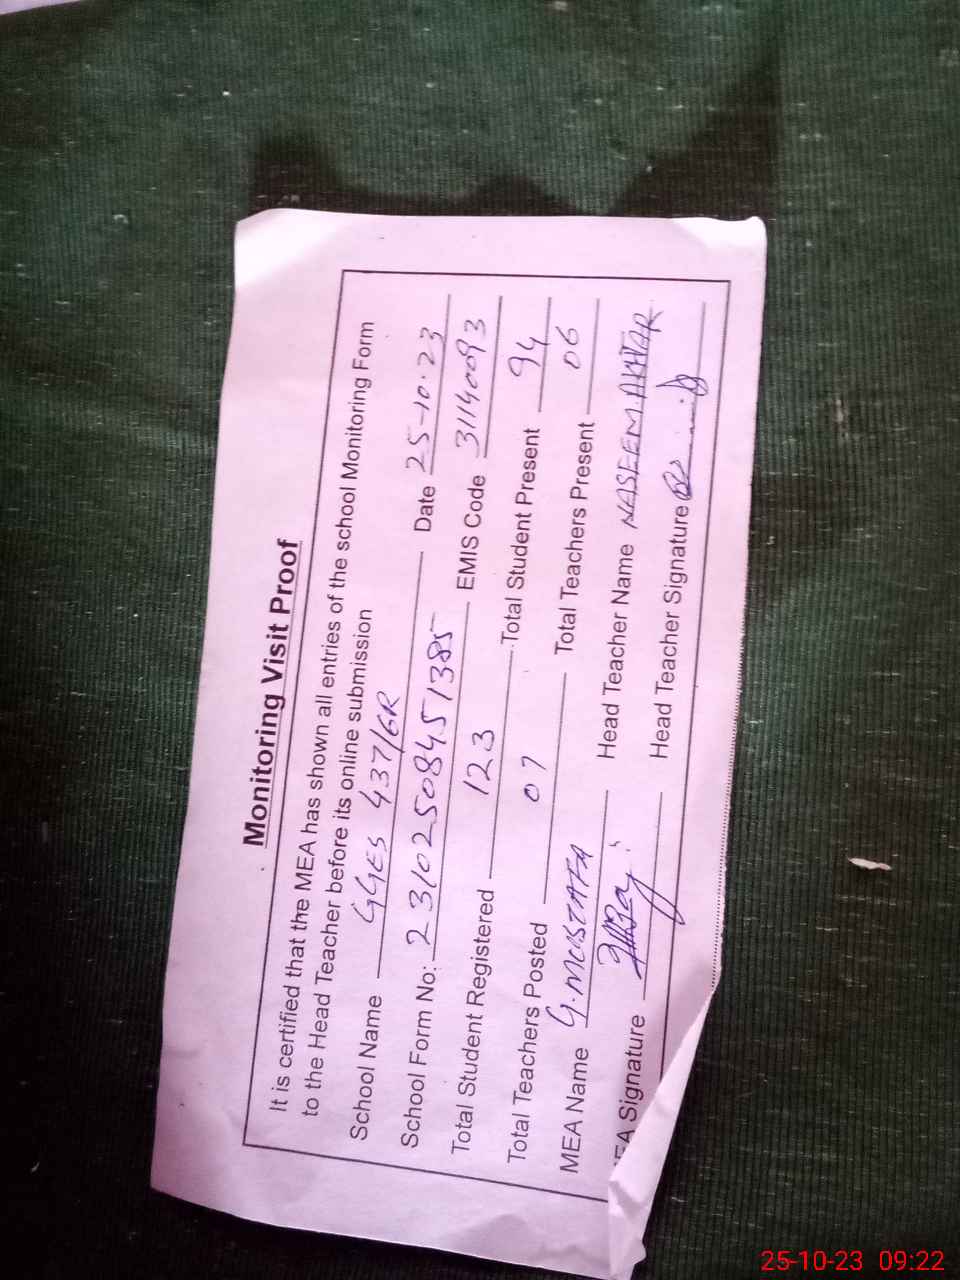 Monitoring Visit Proof
It is certified that the MEA has shown all entries of the school Monitoring Form
to the Head Teacher before its online submission
School Name GGES 437/6R Date 25-10-23
School Form No: 23102508451385 EMIS Code 31140093
Total Student Registered 123 Total Student Present 94
Total Teachers Posted 07 Total Teachers Present 06
MEA Name G.MUSTAFA Head Teacher Name NASEEM.AKHTAR
EA Signature Head Teacher Signature
25-10-23 09:22